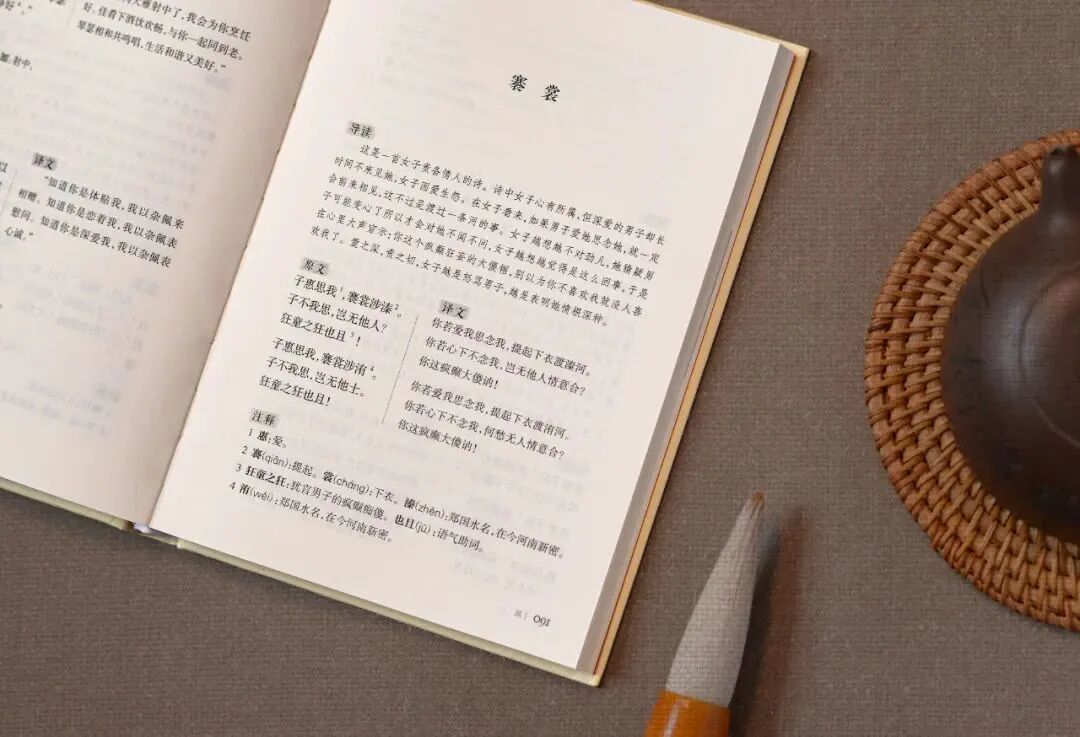 射中了，我会为你烹饪
好。佳肴下酒饮欢畅，与你一起同到老。
琴瑟相和共鸣唱，生活和谐又美好。”
射中。
译文
“知道你是体贴我，我以杂佩来
相赠。知道你是恋着我，我以杂佩表
慰问。知道你是深爱我，我以杂佩表
心诚。”
褰 裳
导读
这是一首女子责备情人的诗。诗中女子心有所属，但深爱的男子却长
时间不来见她，女子因爱生怨。在女子看来，如果男子爱她思念她，就一定
会前来相见，这不过是渡过一条河的事。女子越想越不对劲儿，她猜疑男
子可能变心了所以才会对她不闻不问，女子越想越觉得是这么回事，于是
在心里大声宣示：你这个疯癫狂妄的大傻帽，别以为你不喜欢我就没人喜
欢我了。爱之深，责之切，女子越是怒骂男子，越是表明她情根深种。
原文
子惠思我¹，褰裳涉溱²。
子不我思，岂无他人？
狂童之狂也且³！
子惠思我，褰裳涉洧⁴。
子不我思，岂无他士。
狂童之狂也且！
译文
你若爱我思念我，提起下衣渡溱河。
你若心下不念我，岂无他人情意合？
你这疯癫大傻讷！
你若爱我思念我，提起下衣渡洧河。
你若心下不念我，何愁无人情意合？
你这疯癫大傻讷！
注释
1 惠：爱。
2 褰(qiān)：提起。裳(cháng)：下衣。溱(zhēn)：郑国水名，在今河南新密。
3 狂童之狂：犹言男子的疯癫痴傻。也且(jū)：语气助词。
4 洧(wěi)：郑国水名，在今河南新密。
风 | 091